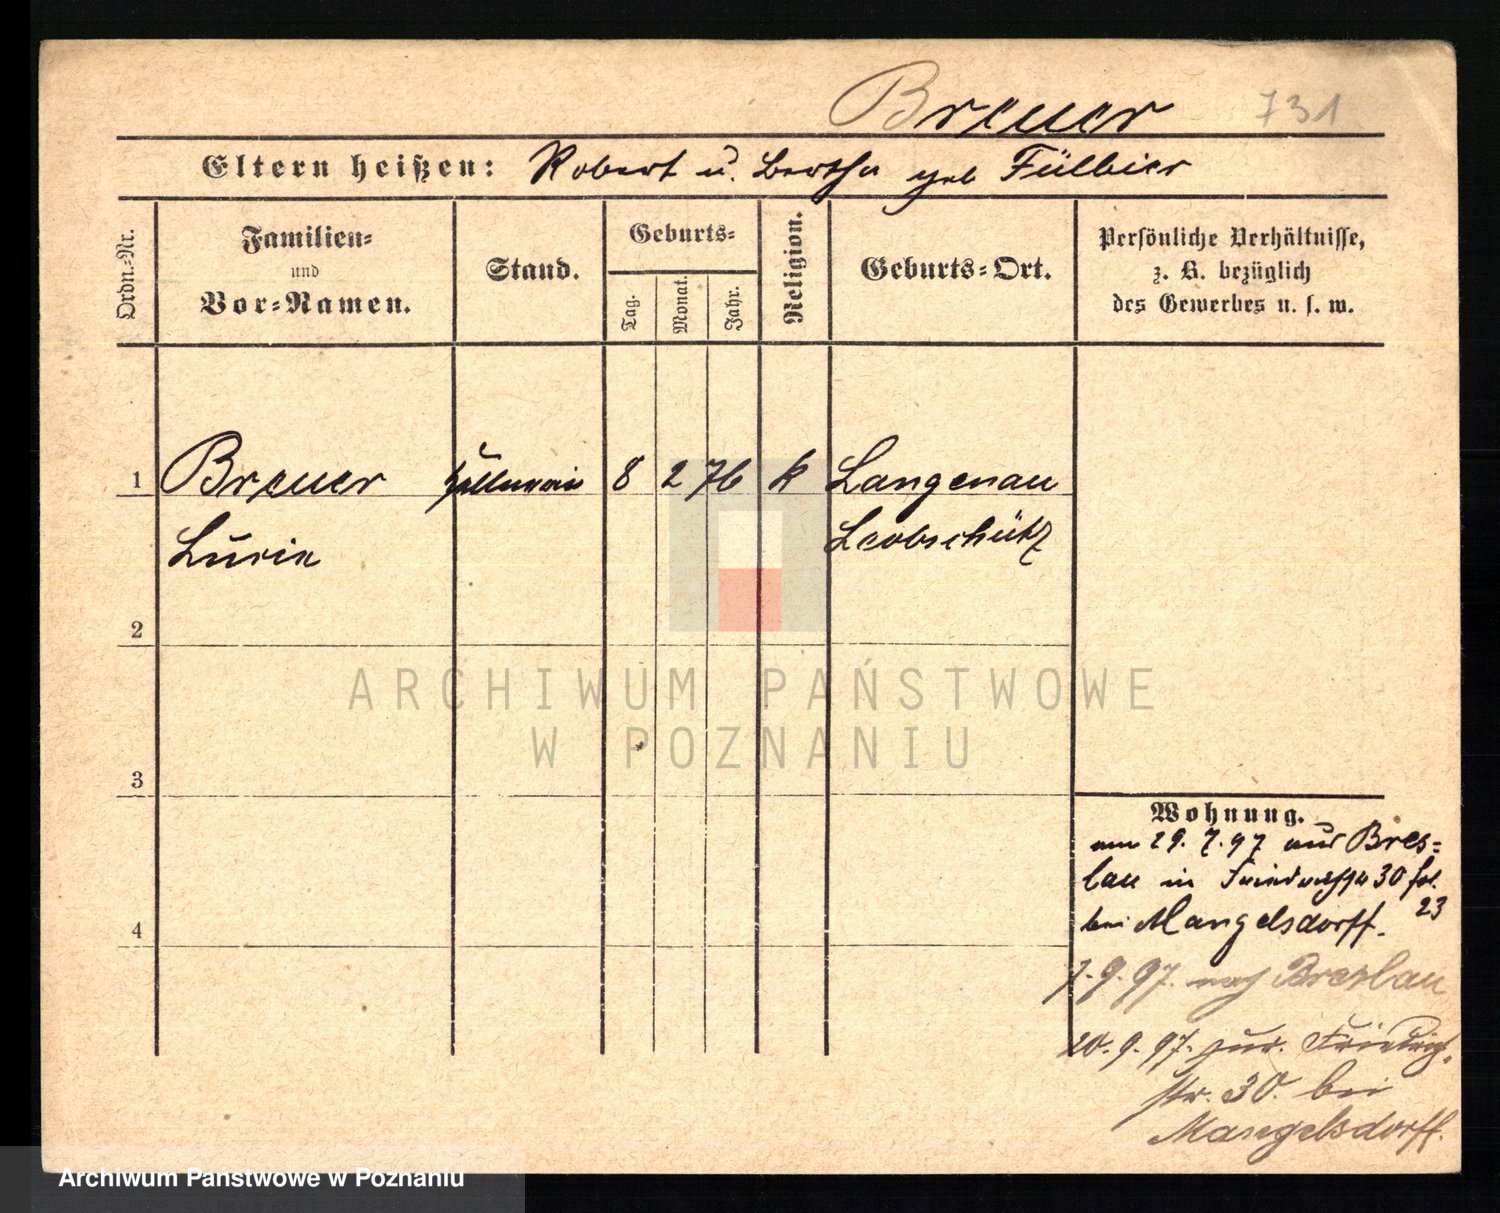 Breuer 731
Eltern heißen: Robert u. Bertha geb Fülbier
Ordn.-Nr.
Familien-
und
Vor-Namen.
Stand.
Geburts-
Tag.
Monat.
Jahr.
Religion.
Geburts-Ort.
Persönliche Verhältnisse,
z. B. bezüglich
des Gewerbes u. s. w.
1 Breuer 8 2 76 k Langenau
Leobschütz
2
3
4
Wohnung.
am 29. 7. 97 aus Bres-
lau in 30
bei Mangelsdorff. 23
7. 9. 97. nach Breslau
20. 9. 97. zur. Friedrich
str. 30. bei
Mangelsdorff.
ARCHIWUM PAŃSTWOWE
W POZNANIU
Archiwum Panstwowe w Poznaniu